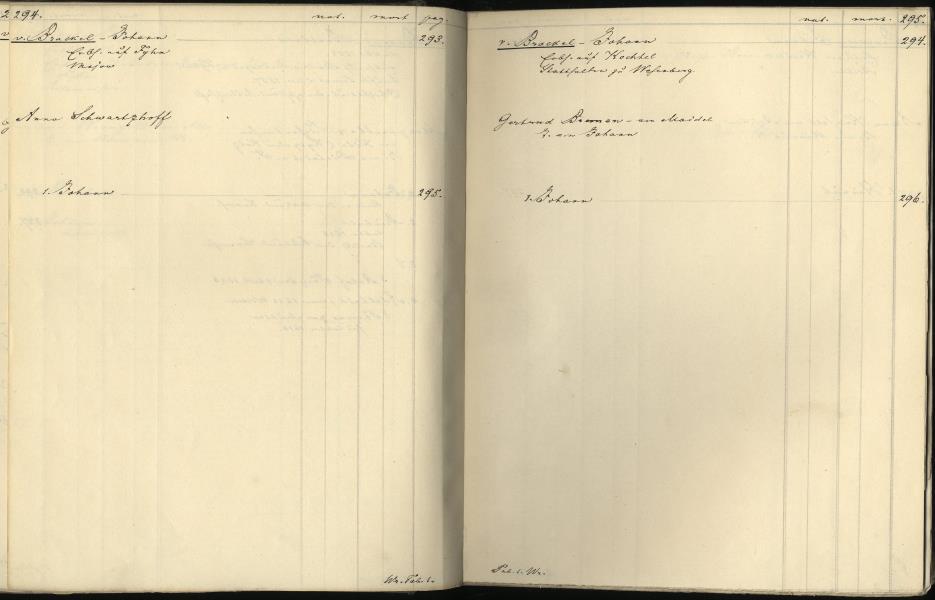 294. nat. mort. pag.
v. Brackel - Johann 293.
Erbh. auf Fyhn
Major
Anna Schwartzhoff
1. Johann 295.
Wr. Tab. 1.
nat. mort. 295.
v. Brackel - Johann 294.
Erbh. auf Kochtel
Statthalter zu Wesenberg.
Gertrud Bremen - an Maidel
J. a.
Johann
1. Johann 296.
Tab. 1. Wr.